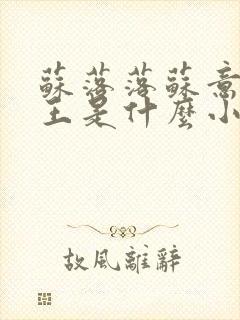 蘇落落蘇意
主是什麼小
故風離辭